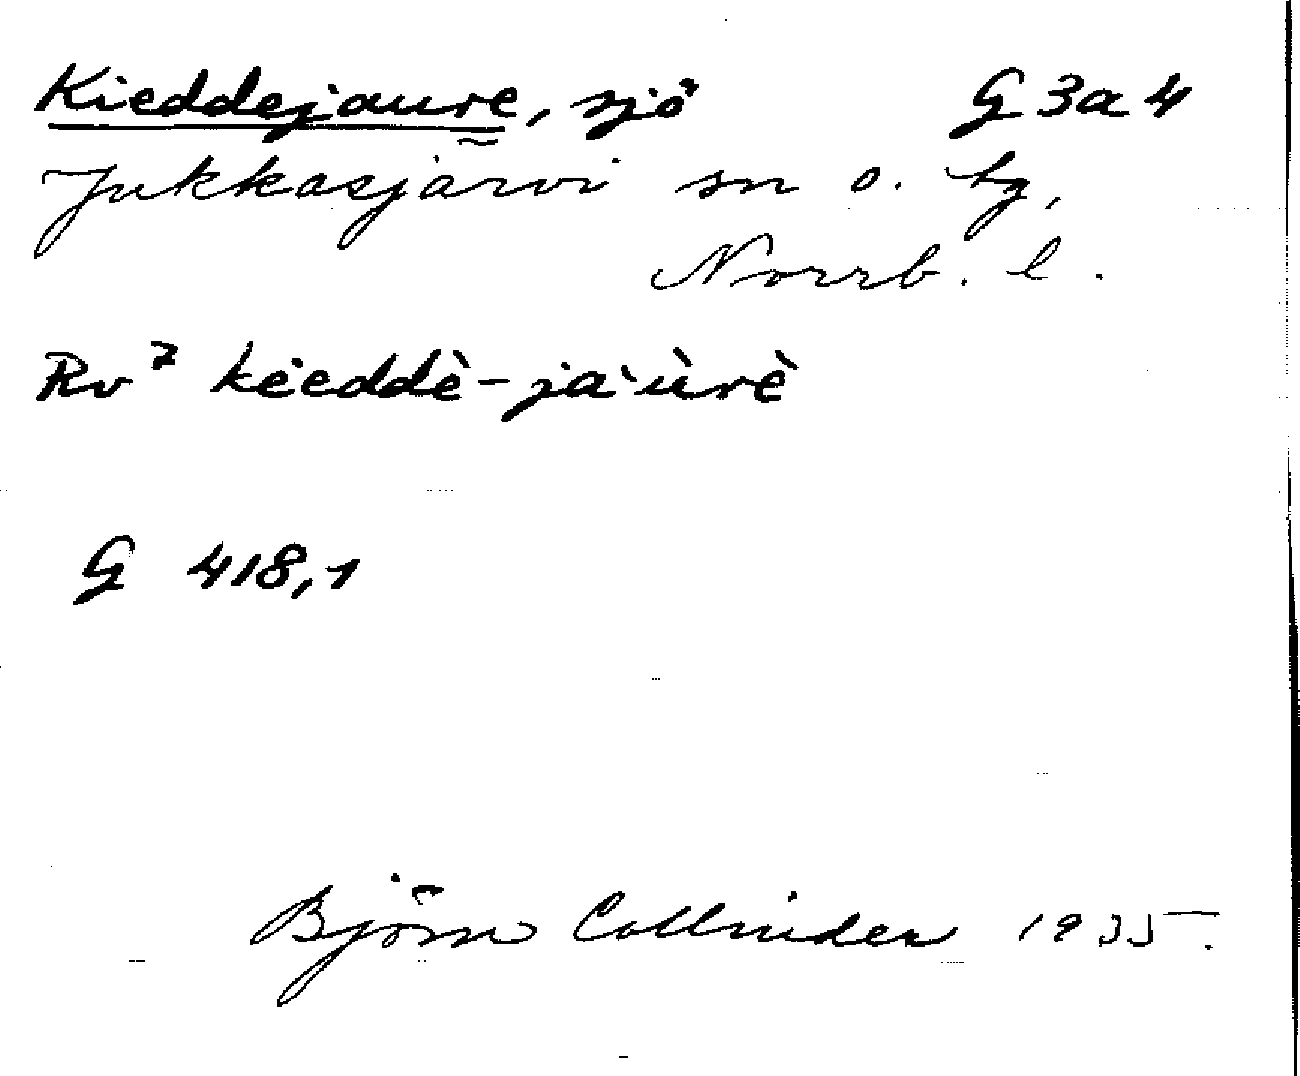 Kieddejaure, sjö G 3a 4
Jukkasjärvi sn o. tg,
Norrb. l.
Rv⁷ kėeddè-ja`ùrè
G 418,1
Björn Collinder 1935.